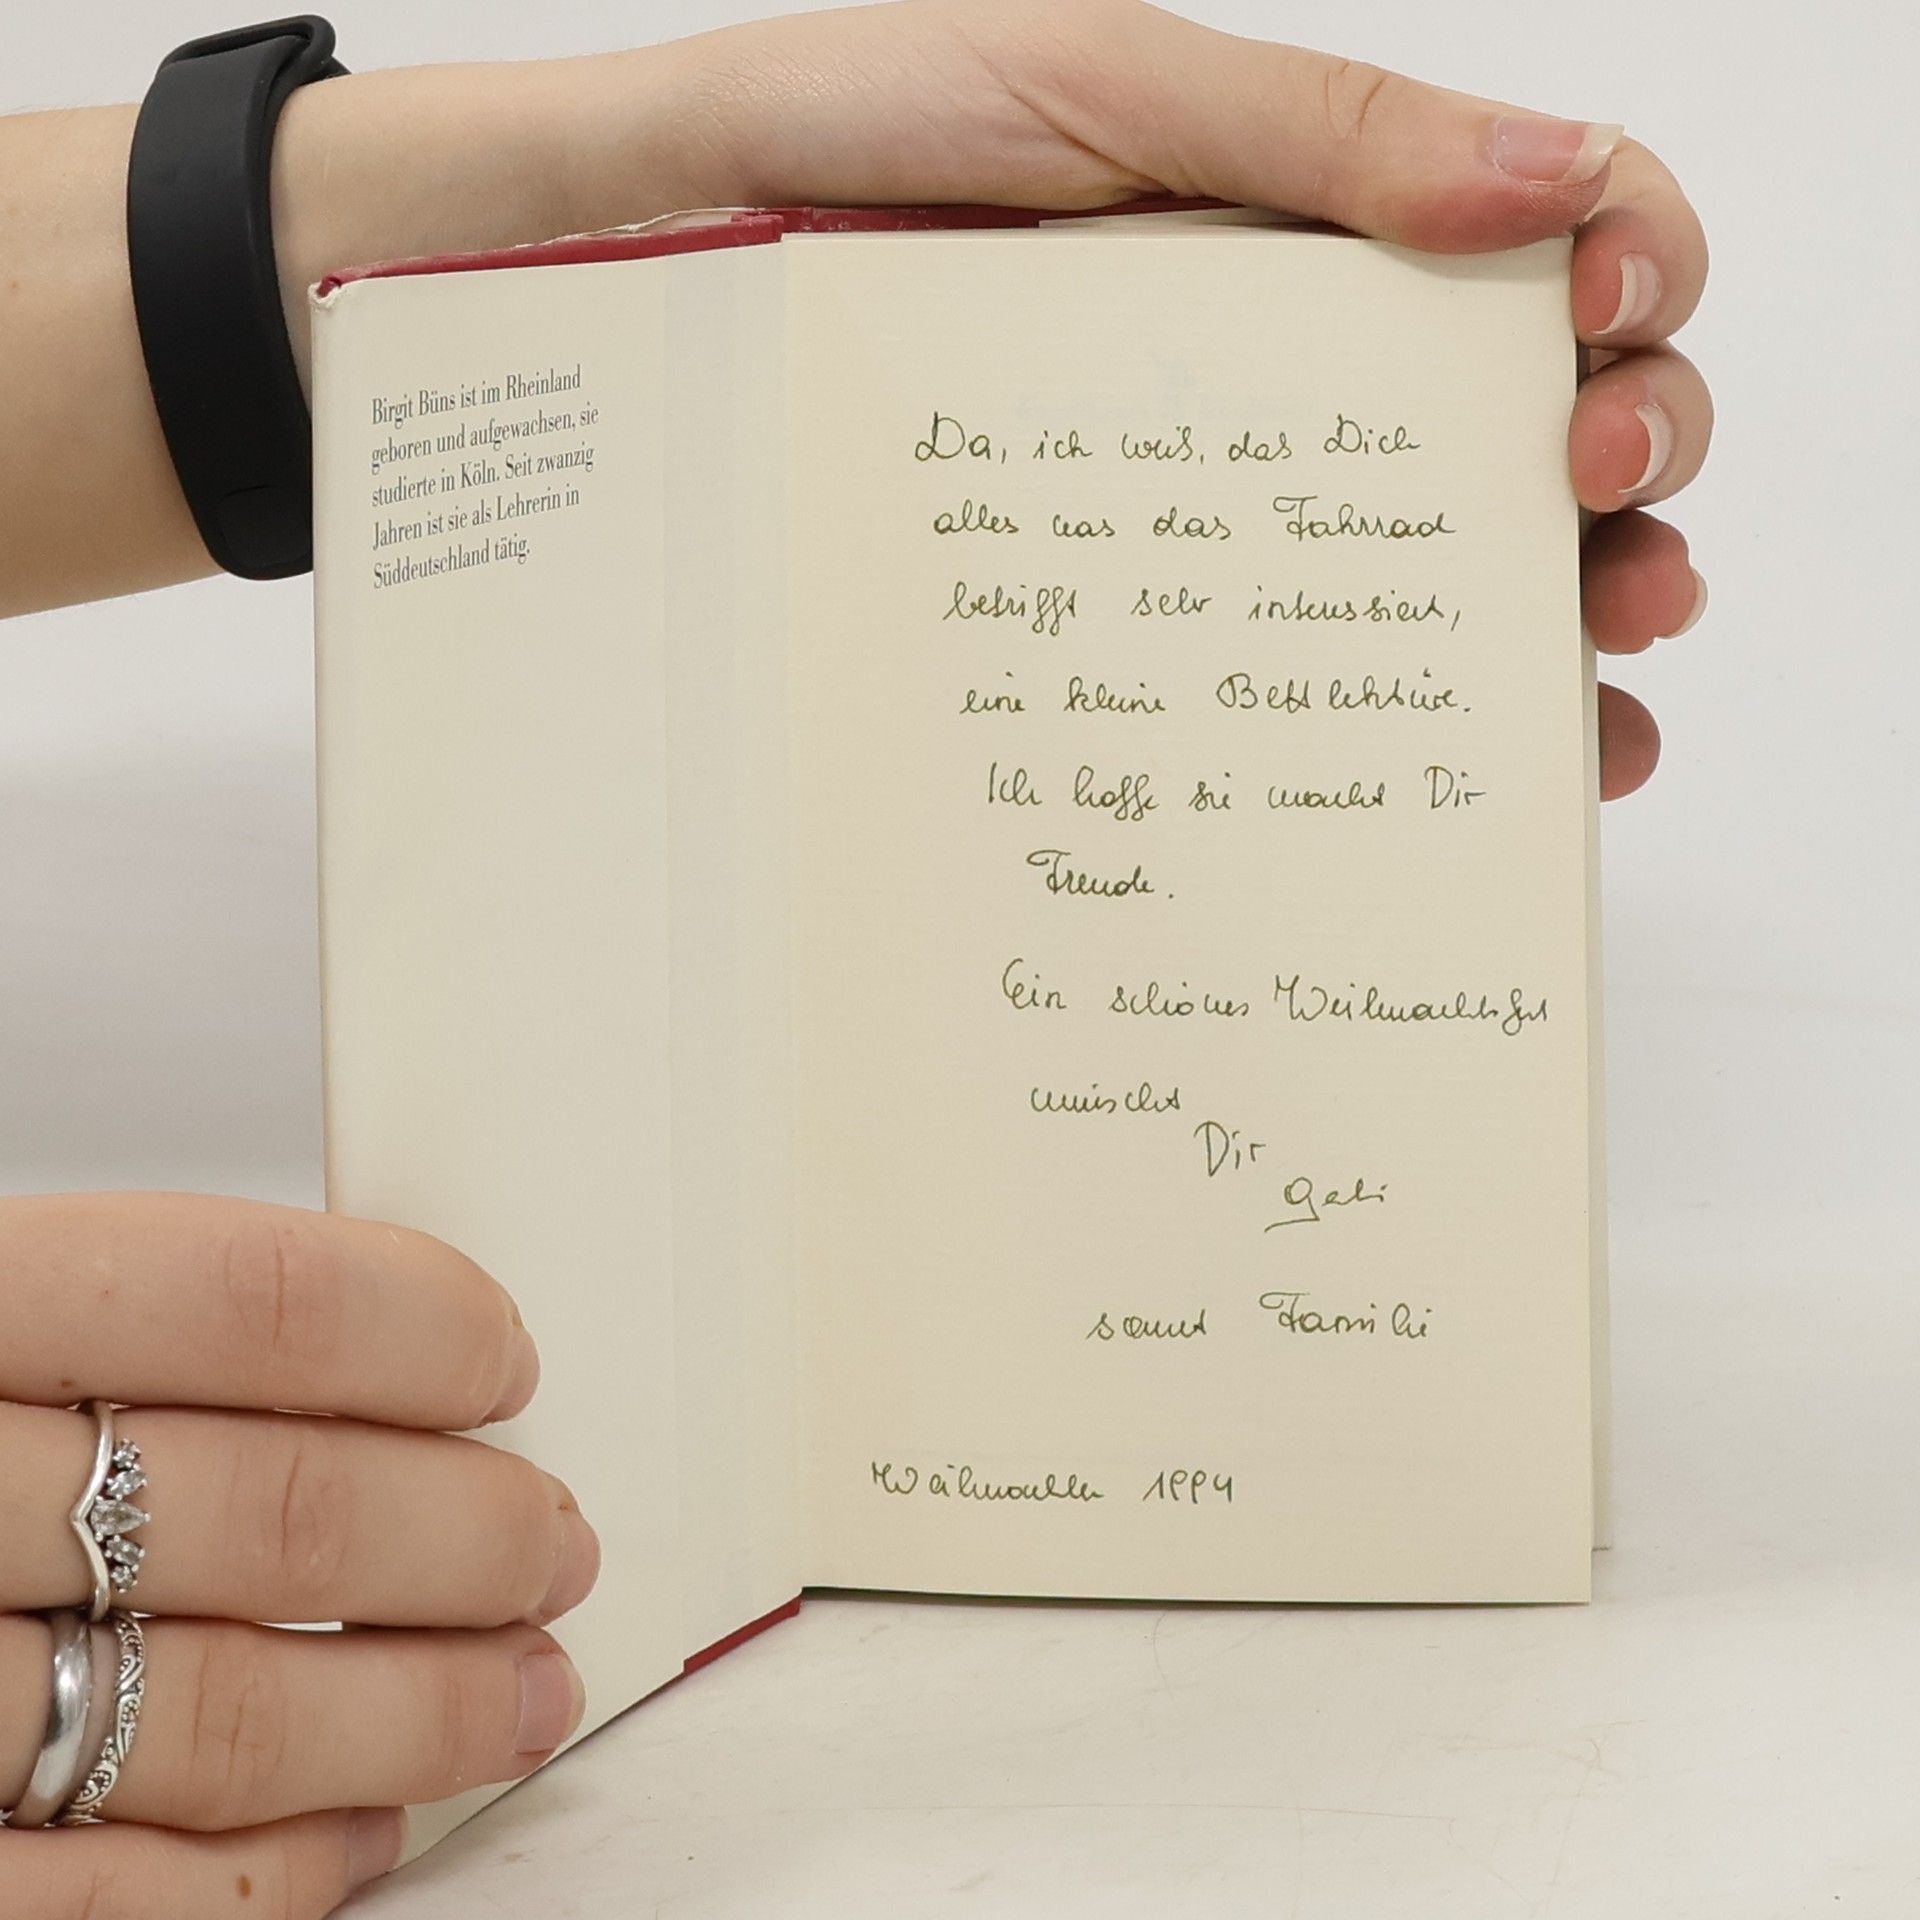 Birgit Büns ist im Rheinland
geboren und aufgewachsen, sie
studierte in Köln. Seit zwanzig
Jahren ist sie als Lehrerin in
Süddeutschland tätig.
Da, ich weiß, das Dich
alles was das Fahrrad
betrifft sehr interessiert,
eine kleine Bettlektüre.
Ich hoffe sie macht Dir
Freude.
Ein schönes Weihnachtsfest
wünscht
Dir
Gabi
samt Familie
Weihnachten 1994